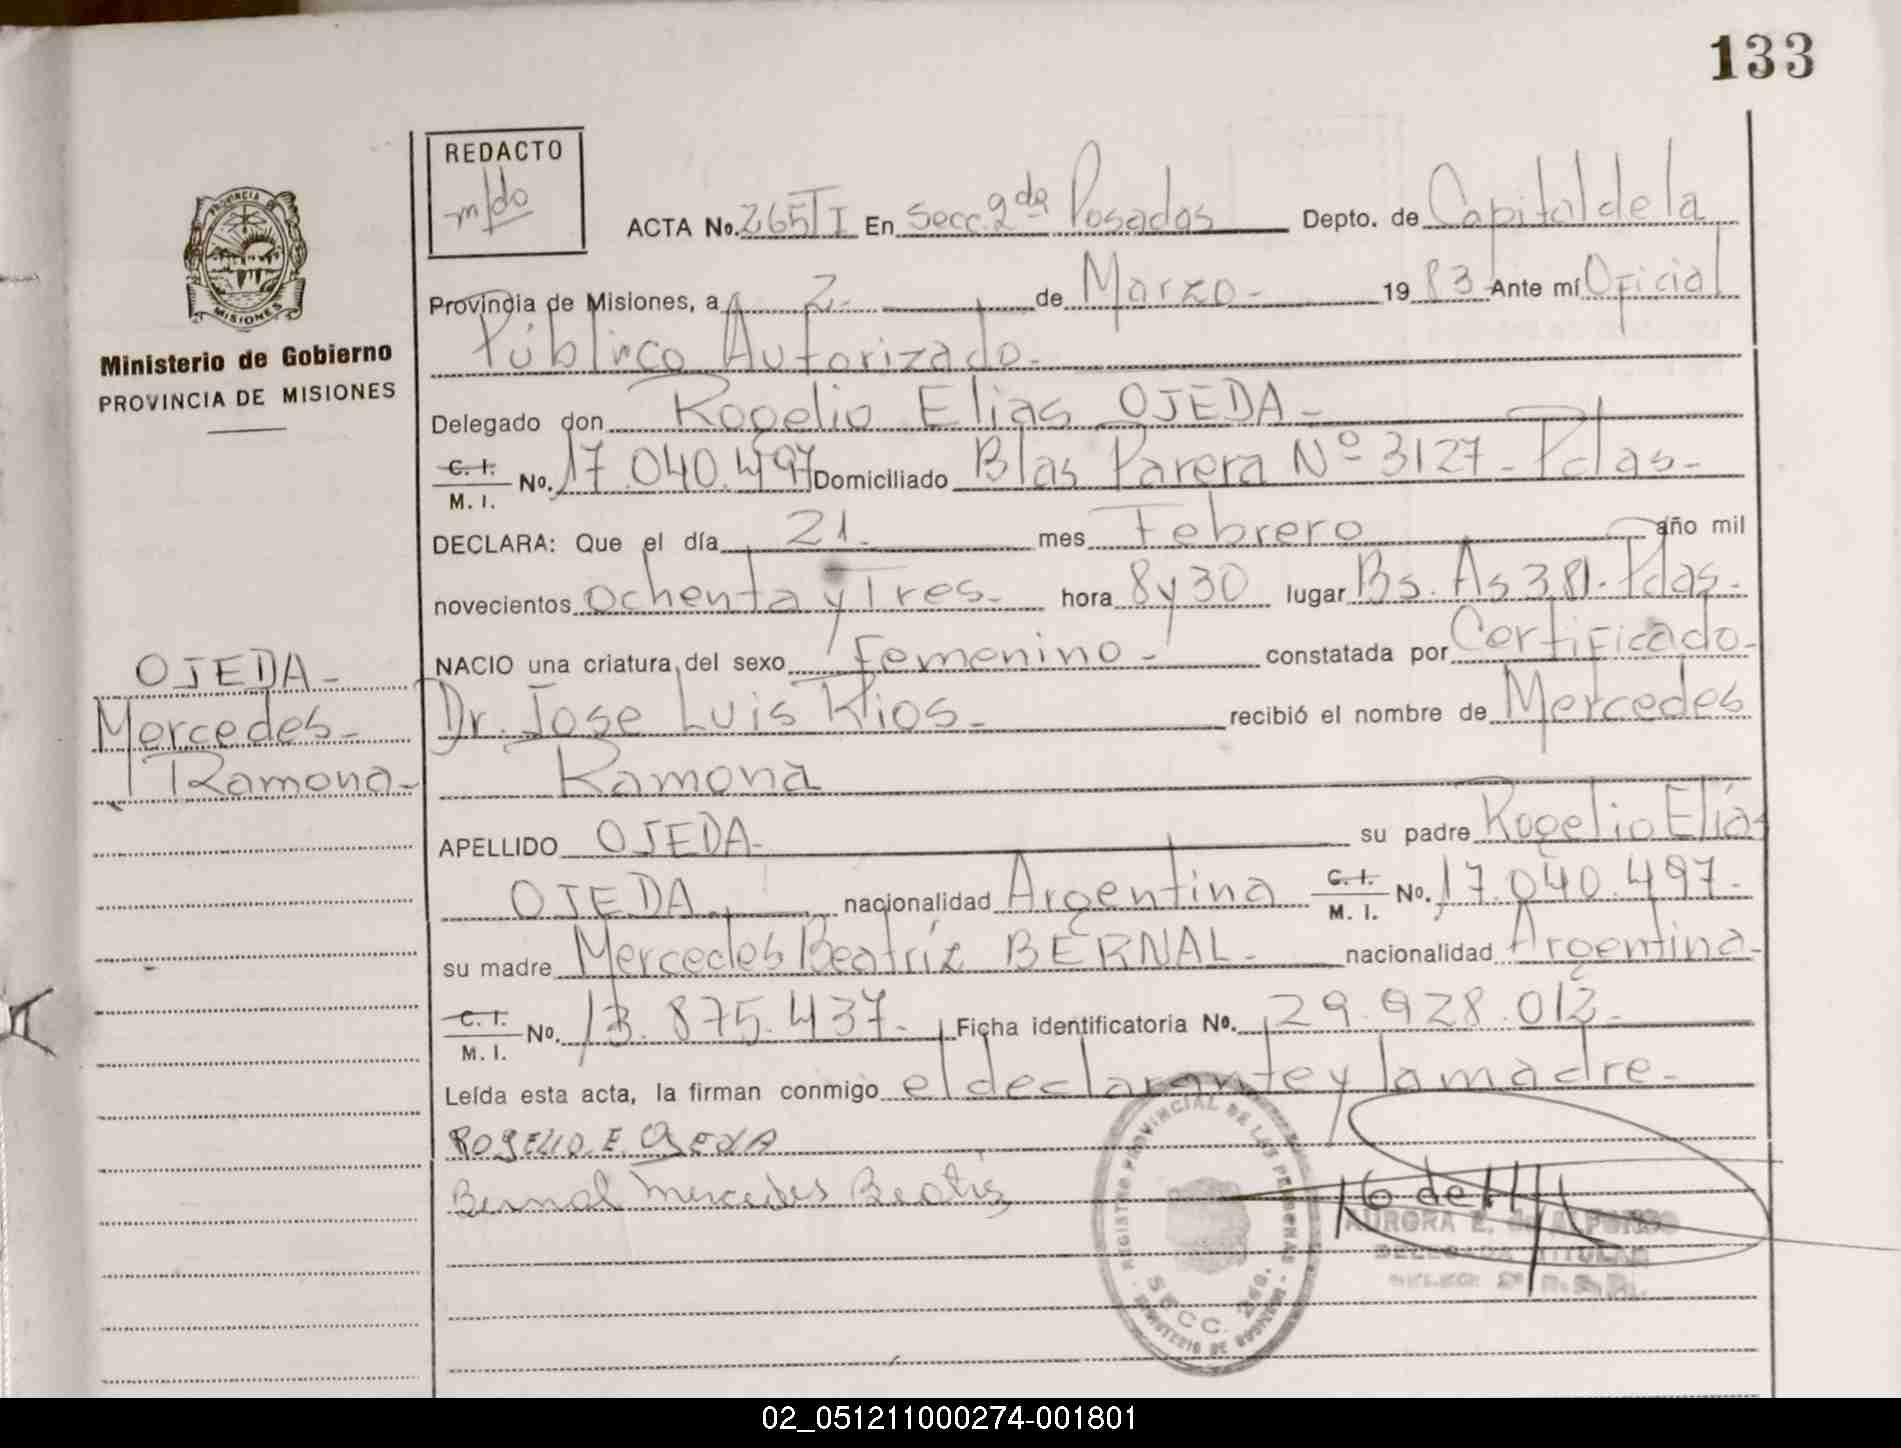 133
REDACTO
ACTA No. 265 T I En Secc. 2da Posadas Depto. de Capital de la
Provincia de Misiones, a 2 de Marzo - 19 83 Ante mí Oficial
Público Autorizado -
Ministerio de Gobierno
PROVINCIA DE MISIONES
Delegado don Rogelio Elias OJEDA -
C. I. / M. I. No. 17.040.497 Domiciliado Blas Parera Nº 3127 - Pdas -
DECLARA: Que el día 21 - mes Febrero año mil
novecientos ochenta y Tres - hora 8 y 30 lugar Bs. As 381 - Pdas -
NACIO una criatura del sexo Femenino - constatada por Certificado -
Dr. Jose Luis Rios - recibió el nombre de Mercedes
Ramona
OJEDA -
Mercedes -
Ramona -
APELLIDO OJEDA - su padre Rogelio Elías
OJEDA - nacionalidad Argentina C. I. / M. I. No. 17.040.497 -
su madre Mercedes Beatríz BERNAL - nacionalidad Argentina -
C. I. / M. I. No. 13.875.437 - Ficha identificatoria No. 29.928.012 -
Leída esta acta, la firman conmigo el declarante y la madre -
ROGELIO. E. OJEDA
Bernal Mercedes Beatriz
REGISTRO PROVINCIAL DE LAS PERSONAS
SECC. 2da.
MINISTERIO DE GOBIERNO
AURORA E. de ALFONSO
DELEGADA TITULAR
PROVINCIA DE
MISIONES
02_051211000274-001801